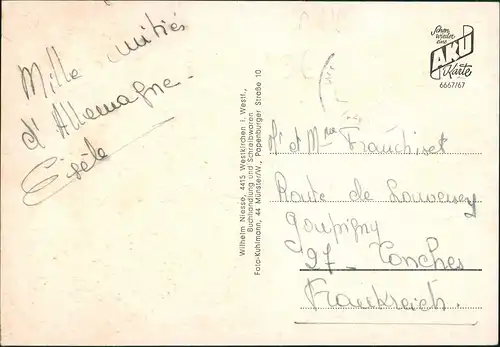 Mille amitiés
d'Allemagne -
Gisèle
Wilhelm Niesse, 4415 Westkirchen i. Westf.,
Buchhandlung und Schreibwaren
Foto-Kuhlmann, 44 Münster/W., Papenburger Straße 10
Schon
wieder
eine
AKU
Karte
6667/67
Mr et Mme Frauchiset
Route de Louversey
Goupigny
27 - Conches
Frankreich.